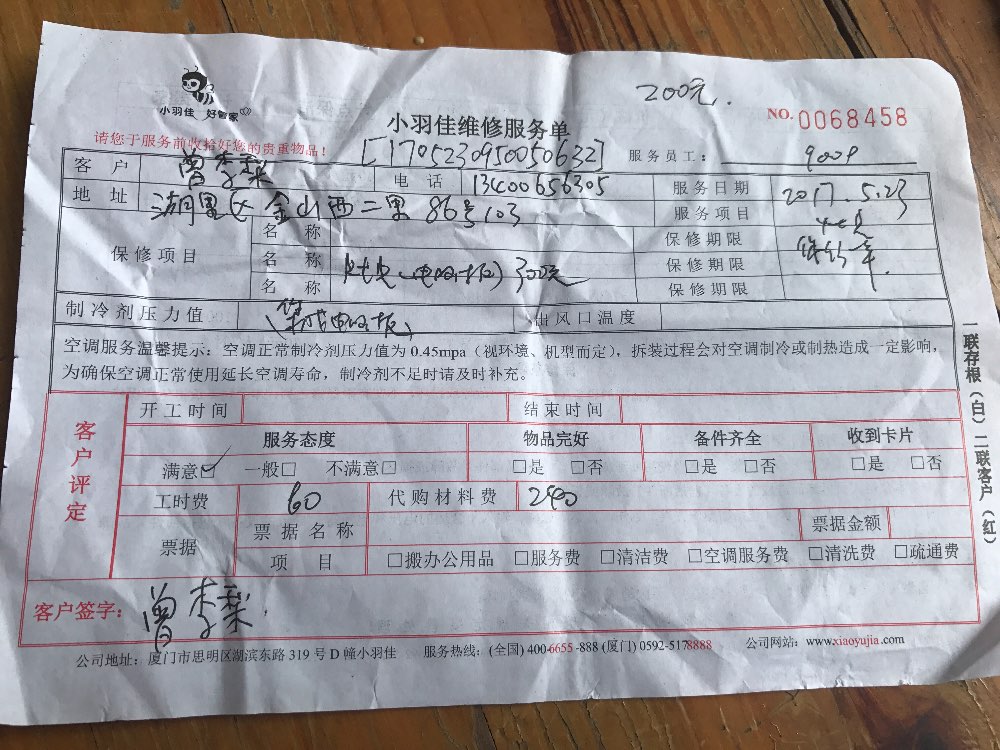 200元.
小羽佳 好管家
小羽佳维修服务单
NO. 0068458
请您于服务前收拾好您的贵重物品!
[1705230950050632]
服务员工:
客户 曾李梨 电话 13400656305 服务日期 2017.5.23
地址 湖里区金山西二里86号103 服务项目
保修项目 名称 保修期限
名称 300元 保修期限
名称 保修期限
制冷剂压力值 出风口温度
空调服务温馨提示:空调正常制冷剂压力值为 0.45mpa(视环境、机型而定),拆装过程会对空调制冷或制热造成一定影响,
为确保空调正常使用延长空调寿命,制冷剂不足时请及时补充。
客户评定
开工时间 结束时间
服务态度 物品完好 备件齐全 收到卡片
满意□✓ 一般□ 不满意□ □是 □否 □是 □否 □是 □否
工时费 60 代购材料费 240
票据 票据名称 票据金额
项目 □搬办公用品 □服务费 □清洁费 □空调服务费 □清洗费 □疏通费
客户签字: 曾李梨
公司地址:厦门市思明区湖滨东路 319 号 D 幢小羽佳 服务热线:(全国) 400-6655-888 (厦门) 0592-5178888 公司网站:www.xiaoyujia.com
一联存根(白)二联客户(红)